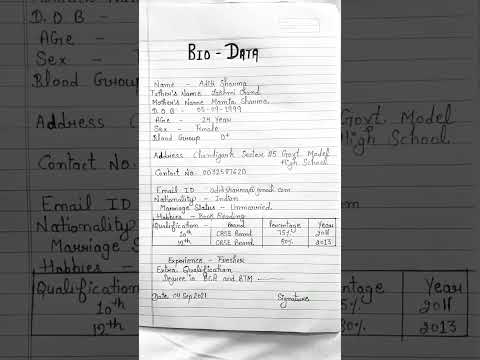 BIO - DATA
Name - Aditi Sharma
Father's Name Lakhmi Chand
Mother's Name Mamta Sharma
D.O.B - 05-09-1999
Age - 24 Year
Sex - Female
Blood Group O+
Address Chandigarh Sector 35 Govt. Model
High School
Contact No. 0032587620
Email ID : aditisharma@gmail.com
Nationality - Indian
Marriage Status - Unmarried
Hobbies - Book Reading
Qualification - Board Percentage Year
10th CBSE Board 75% 2011
12th CBSE Board 80% 2013
Experience - Fresher
Extra Qualification
Degree in BCA and
Date 04 Sep 2021 Signature
D.O.B -
Age -
Sex -
Blood Group
Address
Govt. Model
High School
Contact No.
Email ID
Nationality
Marriage
Hobbies -
Qualification
10th
12th
Year
5% 2011
0% 2013